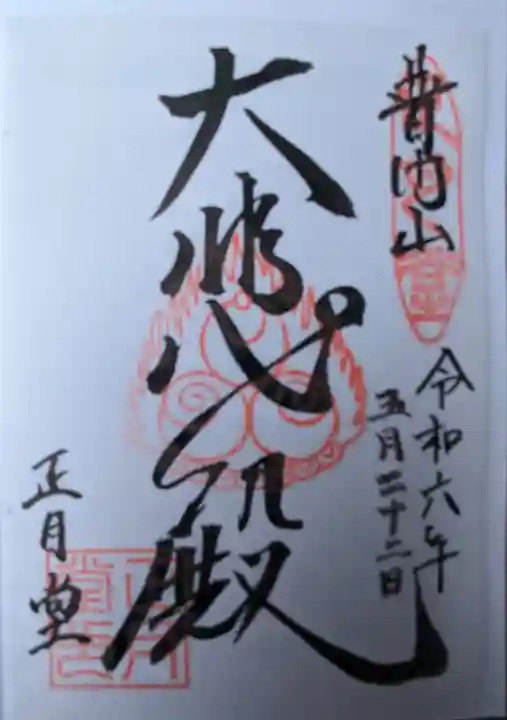 普門山
令和六年
五月二十二日
大悲殿
正月堂